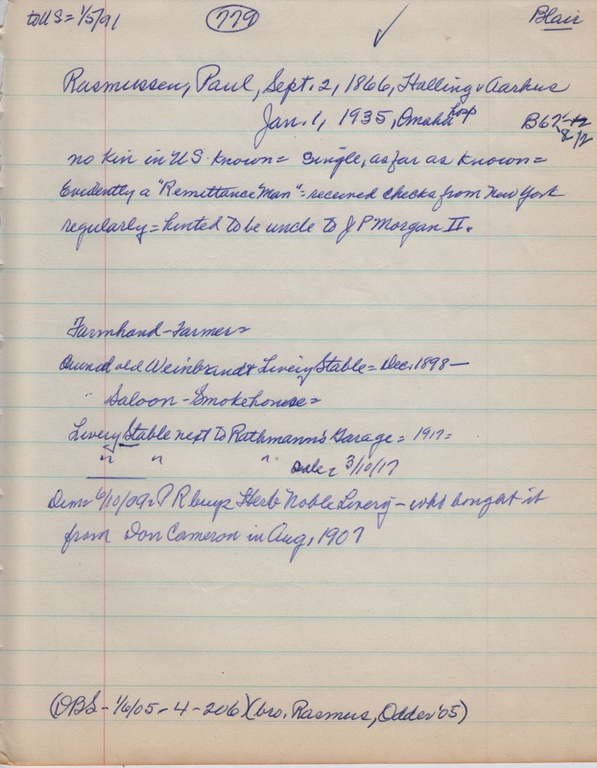 to US = 1/5/91 779 Blair
Rasmussen, Paul, Sept. 2, 1866, Halling v Aarhus
Jan. 1, 1935, Omaha Hosp B62-
8/2
no kin in US known = Single, as far as known =
Evidently a "Remittance Man" = received checks from New York
regularly = hinted to be uncle to J P Morgan II.
Farmhand - Farmer =
Owned old Weinbrandt Livery Stable = Dec. 1898 —
" Saloon - Smokehouse =
Livery Stable next to Rathmann's Garage = 1917 =
" " " Sale = 3/10/17
Dem = 6/10/09 = P R buys Herb Noble Livery - who bought it
from Don Cameron in Aug, 1907
(OBS - 1/6/05 - 4 - 206) (bro. Rasmus, Odder '05)